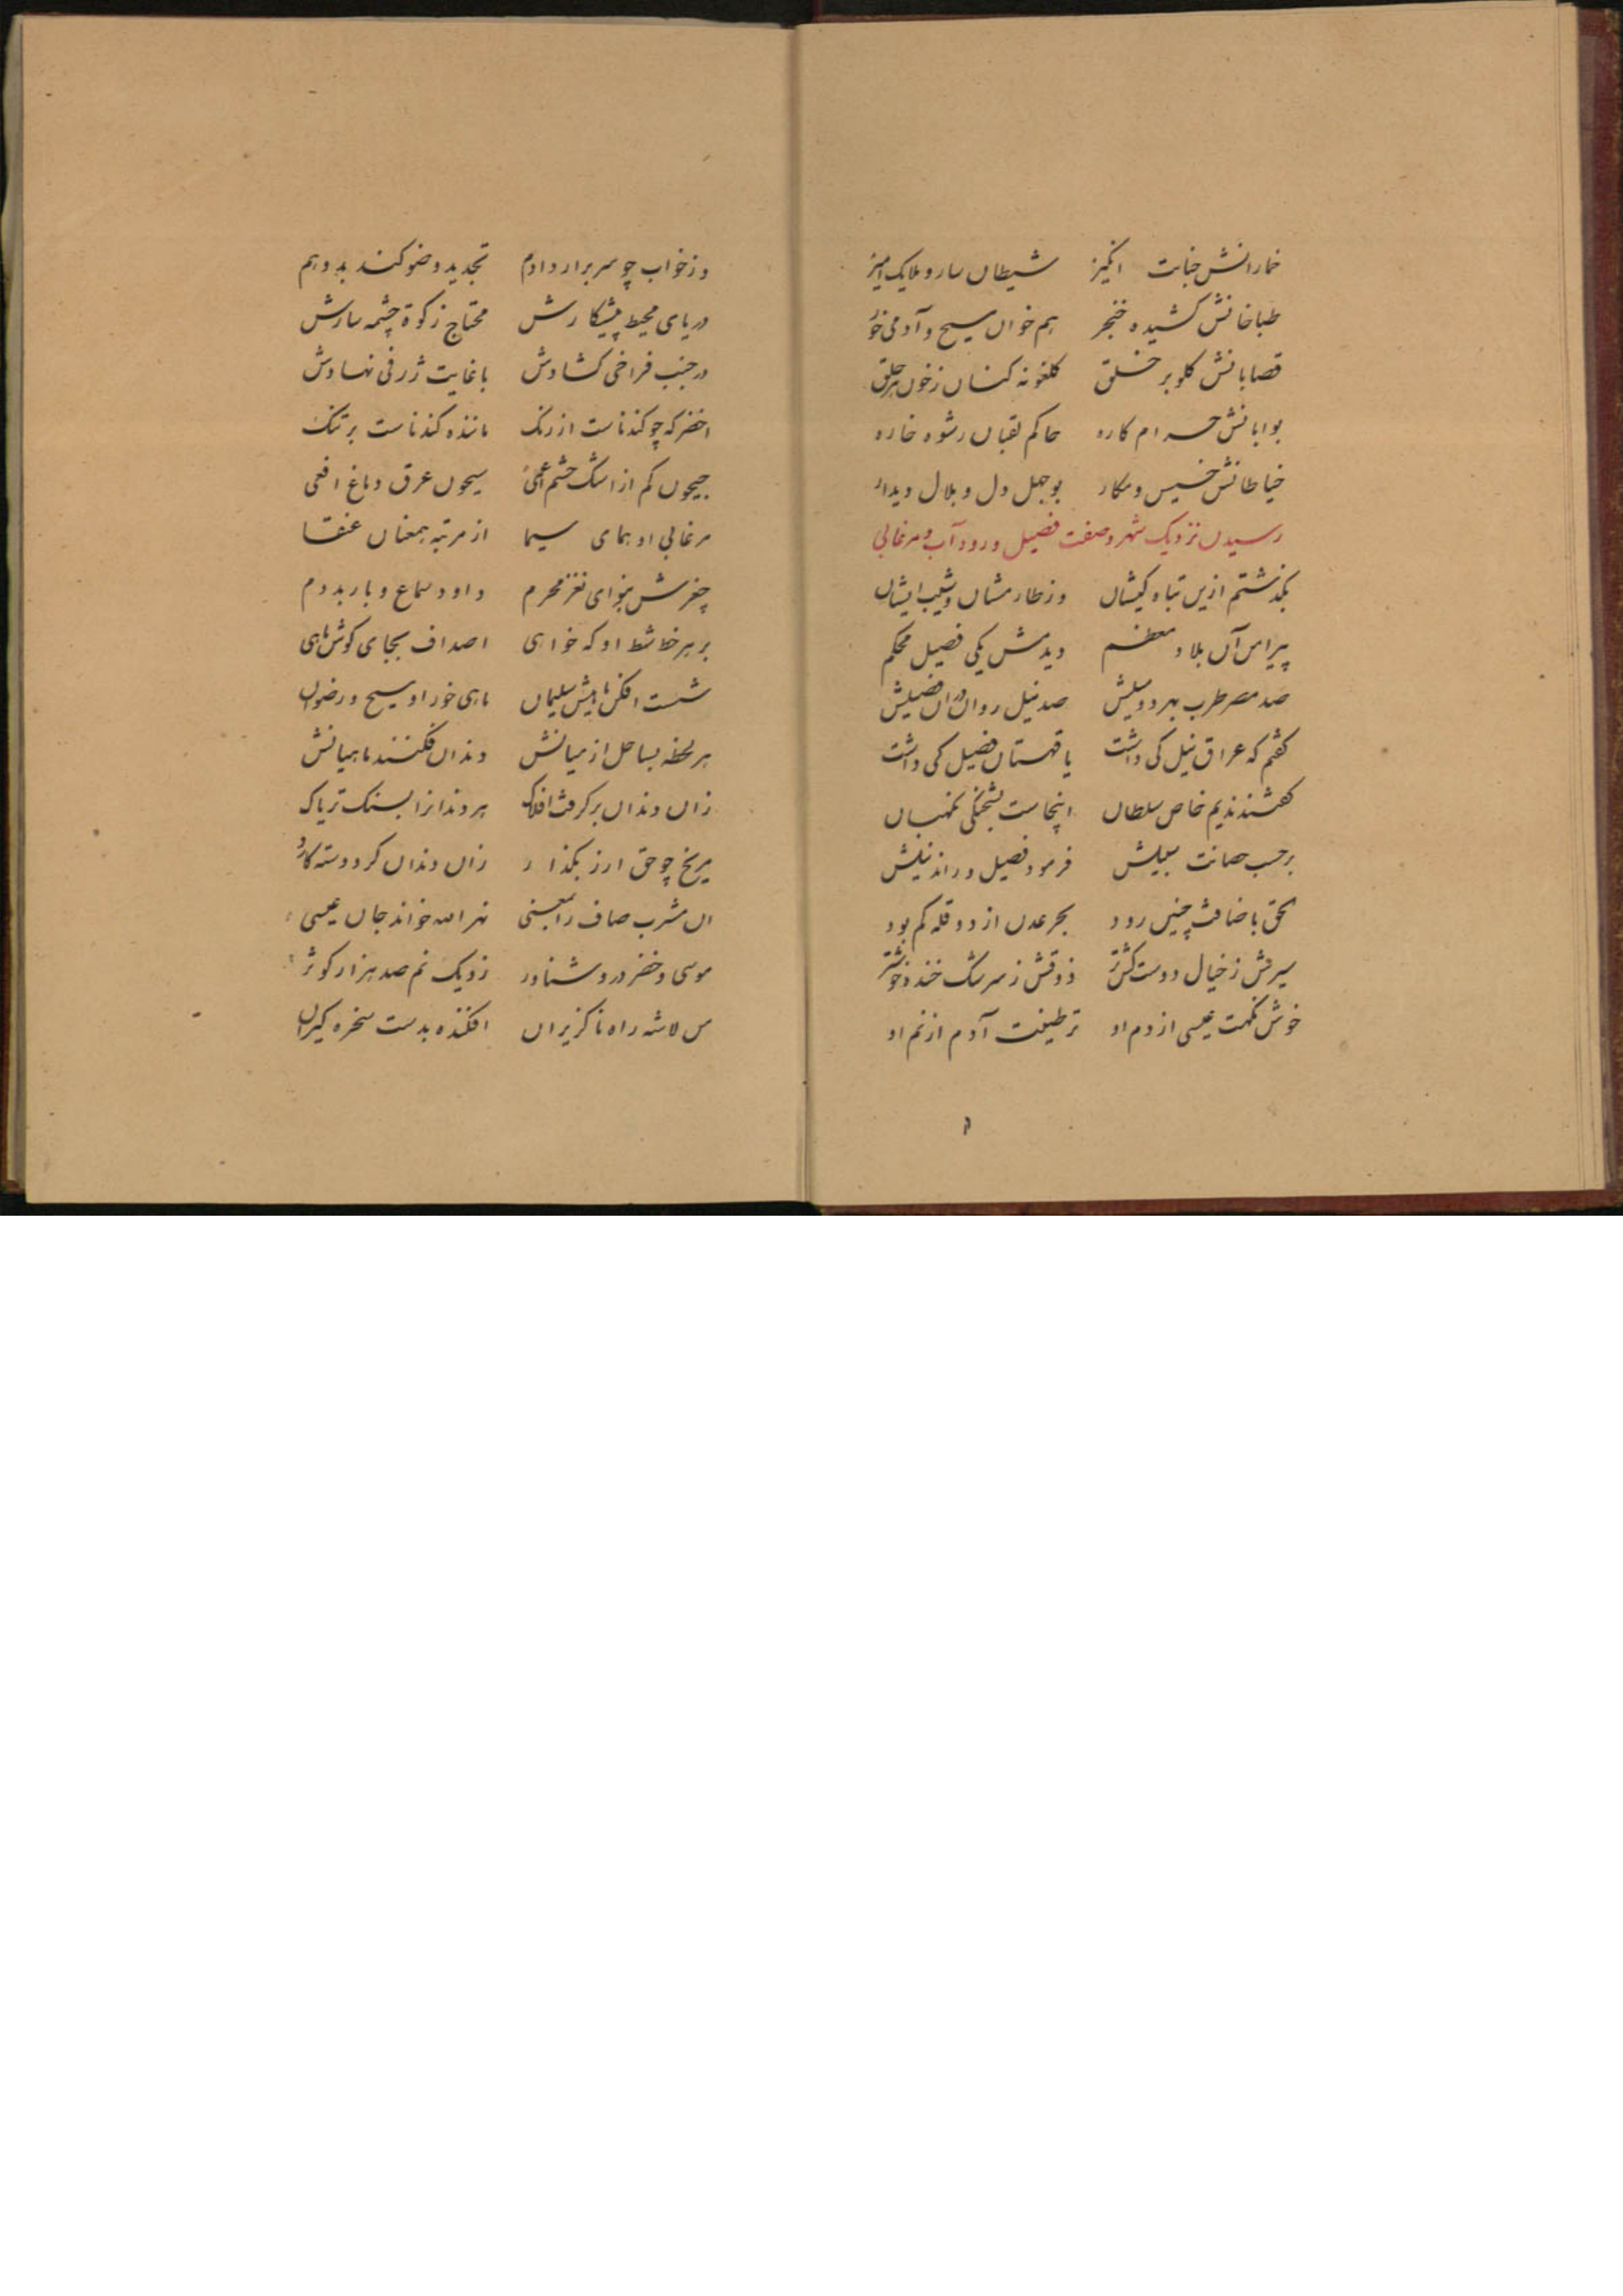 خمارانش جنابت انگیز شیطان سار و ملایک آمیز
طباخانش کشیده خنجر هم خوان مسیح و آدمی خور
قصابانش کلو بر خلق کلغونه کنان زخون هر حلق
بوابانش حرام کاره حاکم لقبان رشوه خاره
خیاطانش خسیس و مکار بوجهل دل و بلال دیدار
رسیدن نزدیک شهر و صفت فصیل و رود آب و مرغابی
بکذشتم ازین تباه کیشان وز طارمشان و شیب ایشان
پیرامن آن بلاد معظم دیدمش یکی فصیل محکم
صد مصر طرب بهر دو میلش صد نیل روان در آن فصیلش
کفتم که عراق نیل کی داشت یا قهستان فصیل کی داشت
کفتند ندیم خاص سلطان اینجاست بشحنکی نکهبان
برحسب صانت سبیلش فرمود فصیل و راند نیلش
الحق باضافت چنین رود بحر عدن از دو قله کم بود
سیرش زخیال دوست کش تر ذوقش زسرشک خنده خوشتر
خوش نکهت عیسی از دم او تر طینت آدم از نم او
وز خواب چو سر برارد آدم تجدید وضو کند بدو هم
دریای محیط پیشکارش محتاج زکوة چشمه سارش
در جنب فراخی کشادش با غایت ژرفی نهادش
اخضر که چو کندناست از رنک ماننده کندناست بر تنک
جیحون کم از اشک چشم اعمی سیحون عرق دماغ افعی
مرغابی او همای سیما از مرتبه همعنان عنقا
چغزش بنوای نغز محرم داود سماع و باربد دم
بر هر خط شط او که خواهی اصداف بجای کوش ماهی
شست افکن ماهیش سلیمان ماهی خور او مسیح و رضوان
هر لحظه بساحل از میانش دندان فکنند ماهیانش
زان دندان برکرفت افلاک هر دندانرا بسنک تریاک
مریخ چو حق ارز بکذارد زان دندان کرد دسته کارد
آن مشرب صاف را بمعنی نهر الله خواند جان عیسی
موسی و خضر در و شناور نزدیک نم صد هزار کوثر
من لاشه راه ناکزیران افکنده بدست سخره کیران